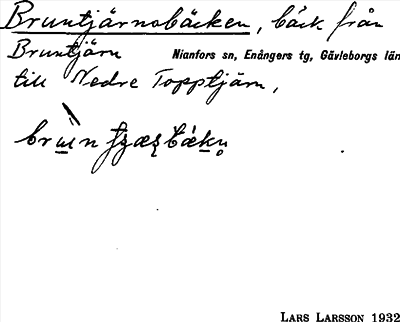 Bruntjärnsbäcken, bäck från
Bruntjärn Nianfors sn, Enångers tg, Gävleborgs län
till Nedre Topptjärn,
LARS LARSSON 1932